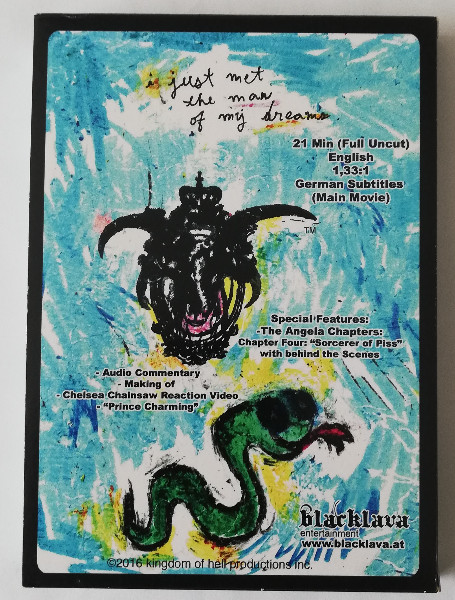 i just met
the man
of my dreams
21 Min (Full Uncut)
English
1,33:1
German Subtitles
(Main Movie)
TM
Special Features:
-The Angela Chapters:
Chapter Four: “Sorcerer of Piss”
with behind the Scenes
- Audio Commentary
- Making of
- Chelsea Chainsaw Reaction Video
- “Prince Charming”
blacklava
entertainment
www.blacklava.at
©2016 kingdom of hell productions inc.